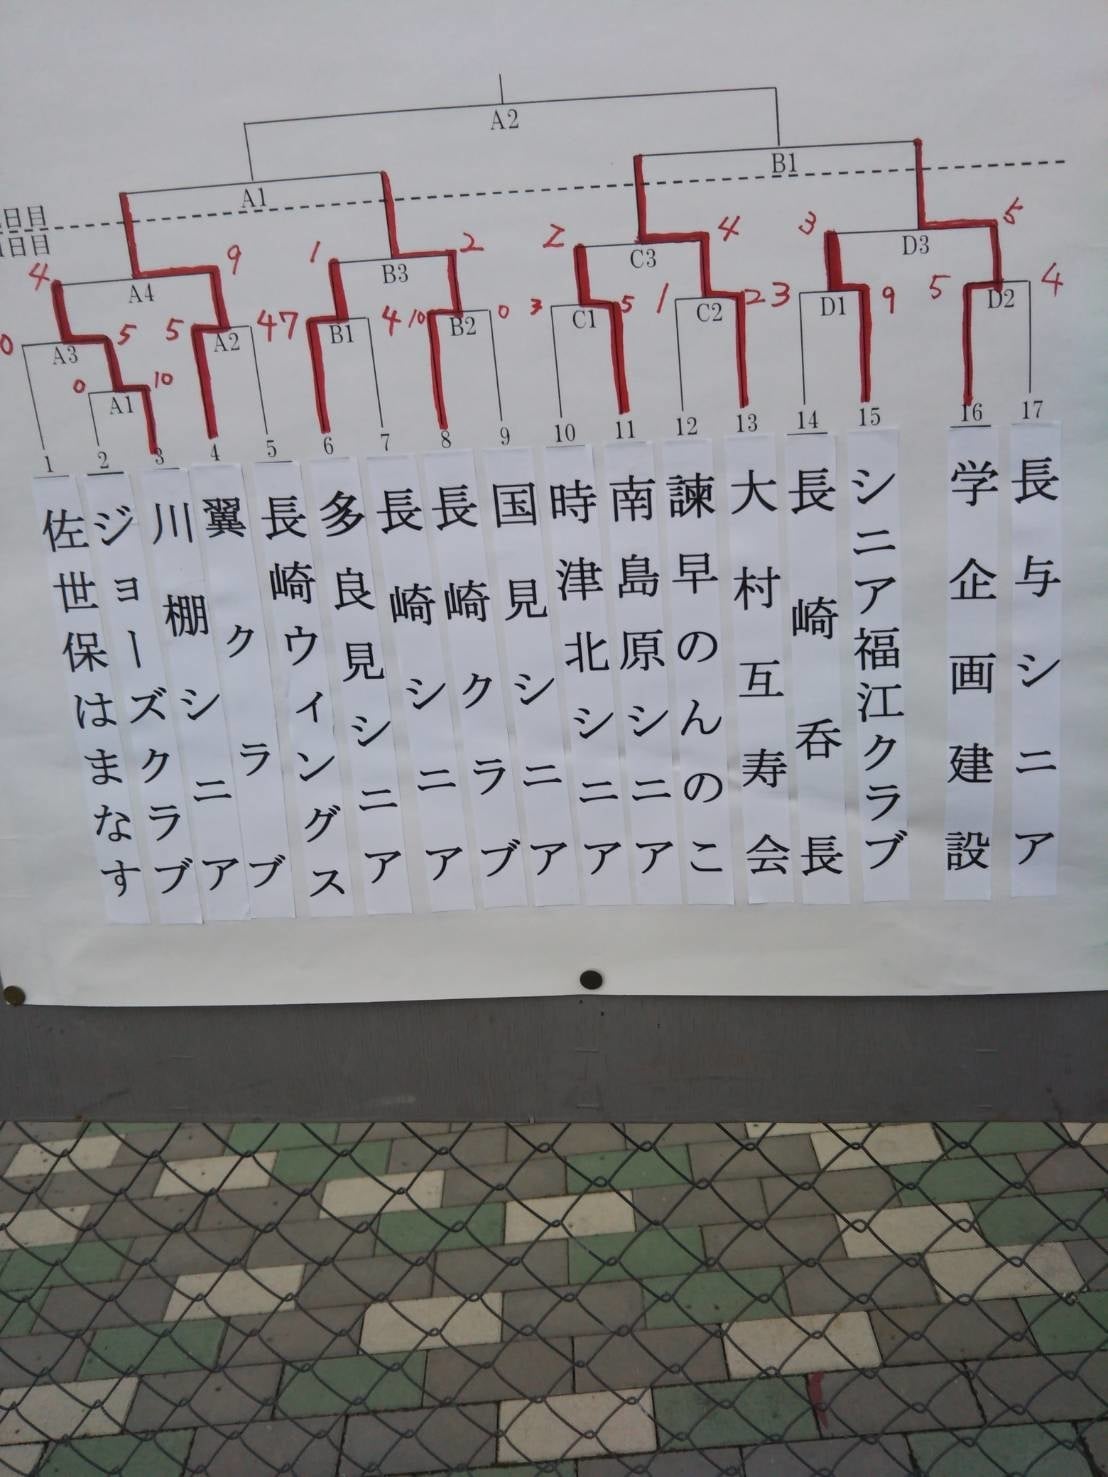 A2
A1
B1
日目
日目
4
A4
9
1
B3
2
2
C3
4
3
D3
5
0
A3
5
5
A2
4
7
B1
4
10
B2
0
3
C1
5
1
C2
2
3
D1
9
5
D2
4
0
A1
10
1
2
3
4
5
6
7
8
9
10
11
12
13
14
15
16
17
佐世保はまなす
ジョーズクラブ
川棚シニア
翼クラブ
長崎ウィングス
多良見シニア
長崎シニア
長崎クラブ
国見シニア
時津北シニア
南島原シニア
諫早のんのこ
大村互寿会
長崎呑長
シニア福江クラブ
学企画建設
長与シニア